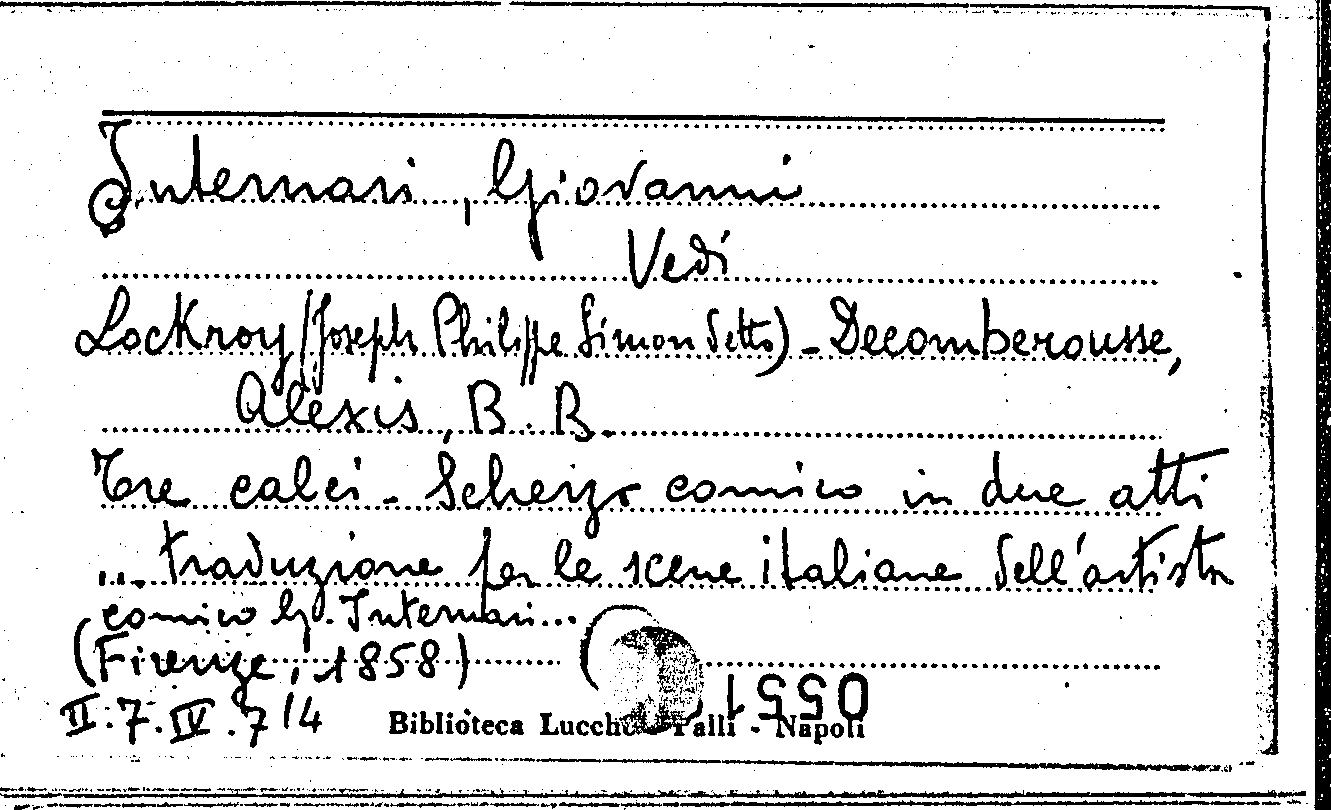 Internari, Giovanni
Vedi
Lockroy (Joseph Philippe Simon detto) - Decomberousse,
Alexis, B. B.
Tre calci - Scherzo comico in due atti
... traduzione per le scene italiane dell'artista
comico G. Internari...
(Firenze, 1858)
II.7.IV.7/4
Biblioteca Lucchesi Palli - Napoli
0551